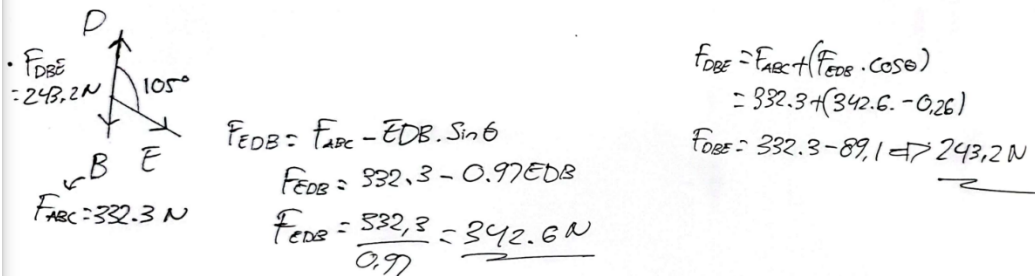 D
• F_DBE
= 243,2N
105°
B E
F_ABC = 332.3 N
F_EDB = F_ABC - EDB. Sin θ
F_EDB = 332.3 - 0.97EDB
F_EDB = 332,3/0,97 = 342.6N
F_DBE = F_ABC + (F_EDB . COSθ)
= 332.3 + (342.6. -0,26)
F_DBE = 332.3 - 89,1 => 243,2N